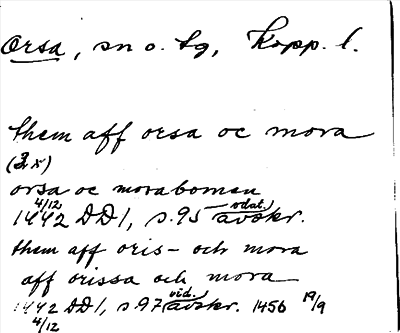 Orsa, sn o. tg, Kopp. l.
them aff orsa oc mora
(2 x)
orsa oc morabomen
4/12 odat.
1442 DD 1, s. 95 avskr.
them aff oris- och mora
aff orissa och mora
vid. 19/9
1442 DD 1, s 97 avskr. 1456
4/12